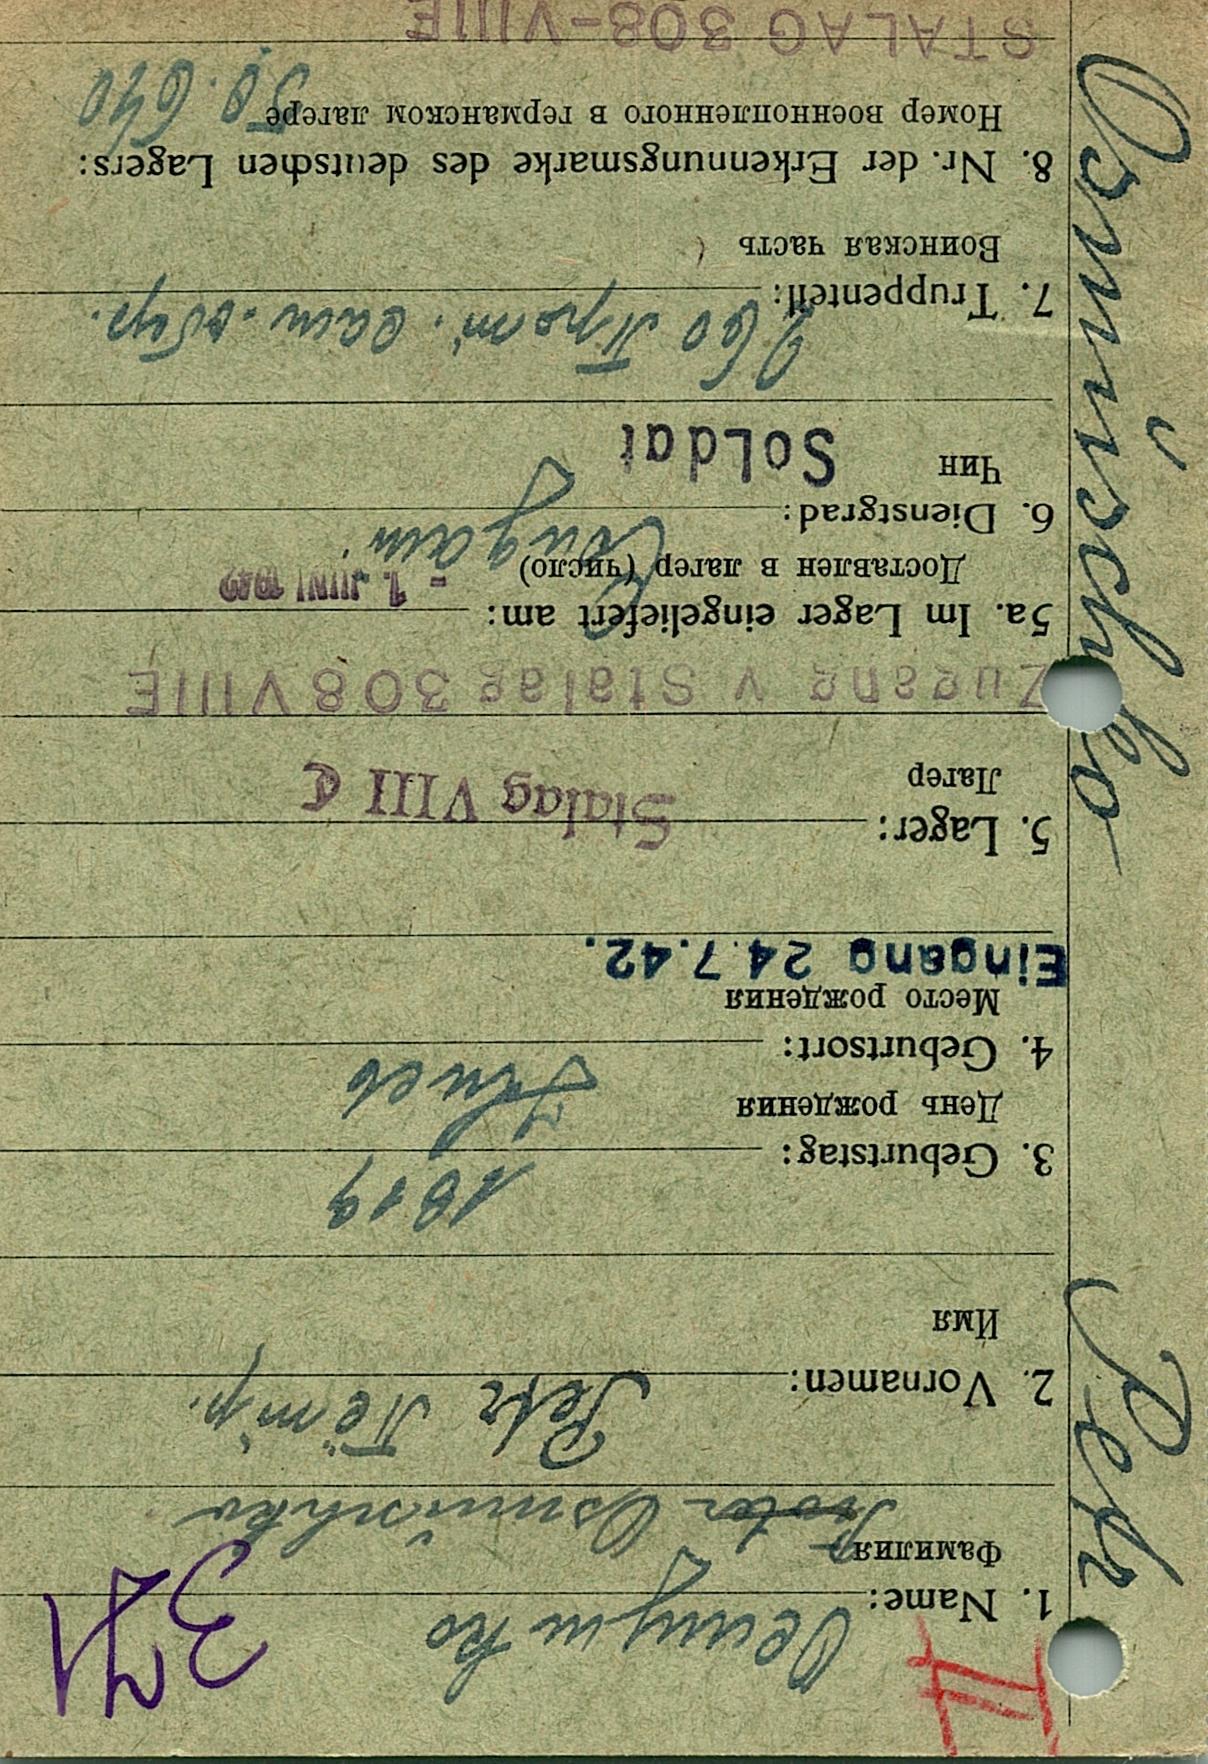 II
371
1. Name: Осмушко
Фамилия
Osmüschko
2. Vornamen: Petr Петр.
Имя
3. Geburtstag: 1919
День рождения
4. Geburtsort: Киев
Место рождения
Eingang 24.7.42.
5. Lager: Stalag VIII C
Лагер
Zugang v Stalag 308 VIIIE
5a. Im Lager eingeliefert am: - 1. JUNI 1942
Доставлен в лагер (число)
6. Dienstgrad: Солдат
Чин Soldat
7. Truppenteil: 260
Воинская часть
8. Nr. der Erkennungsmarke des deutschen Lagers:
Номер военнопленного в германском лагере 50.640
STALAG 308-VIIIE
Petr Osmüschko